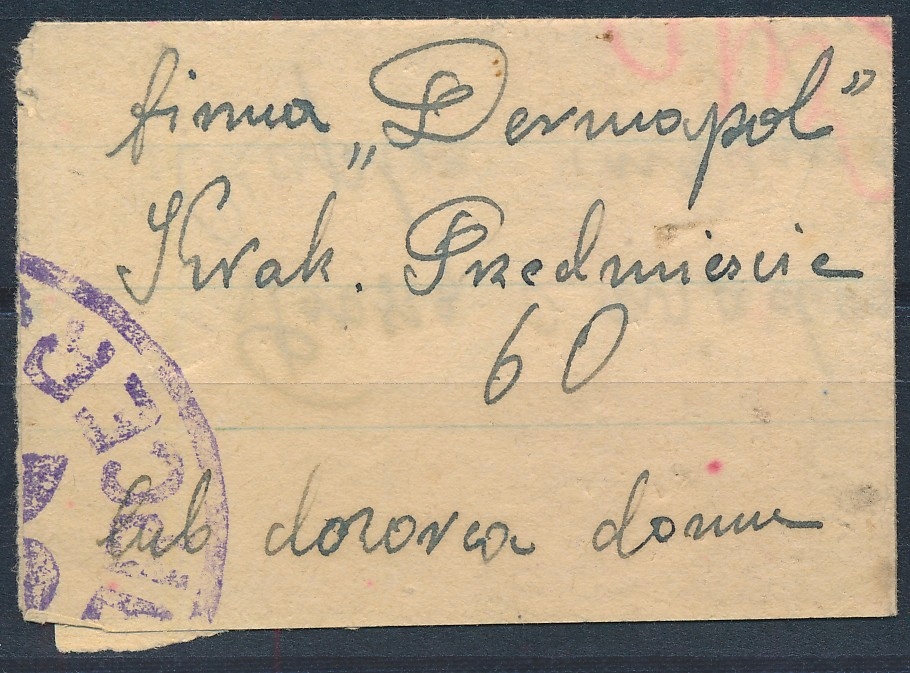 firma „Dermapol”
Krak. Przedmieście
60
lub dozorca domu